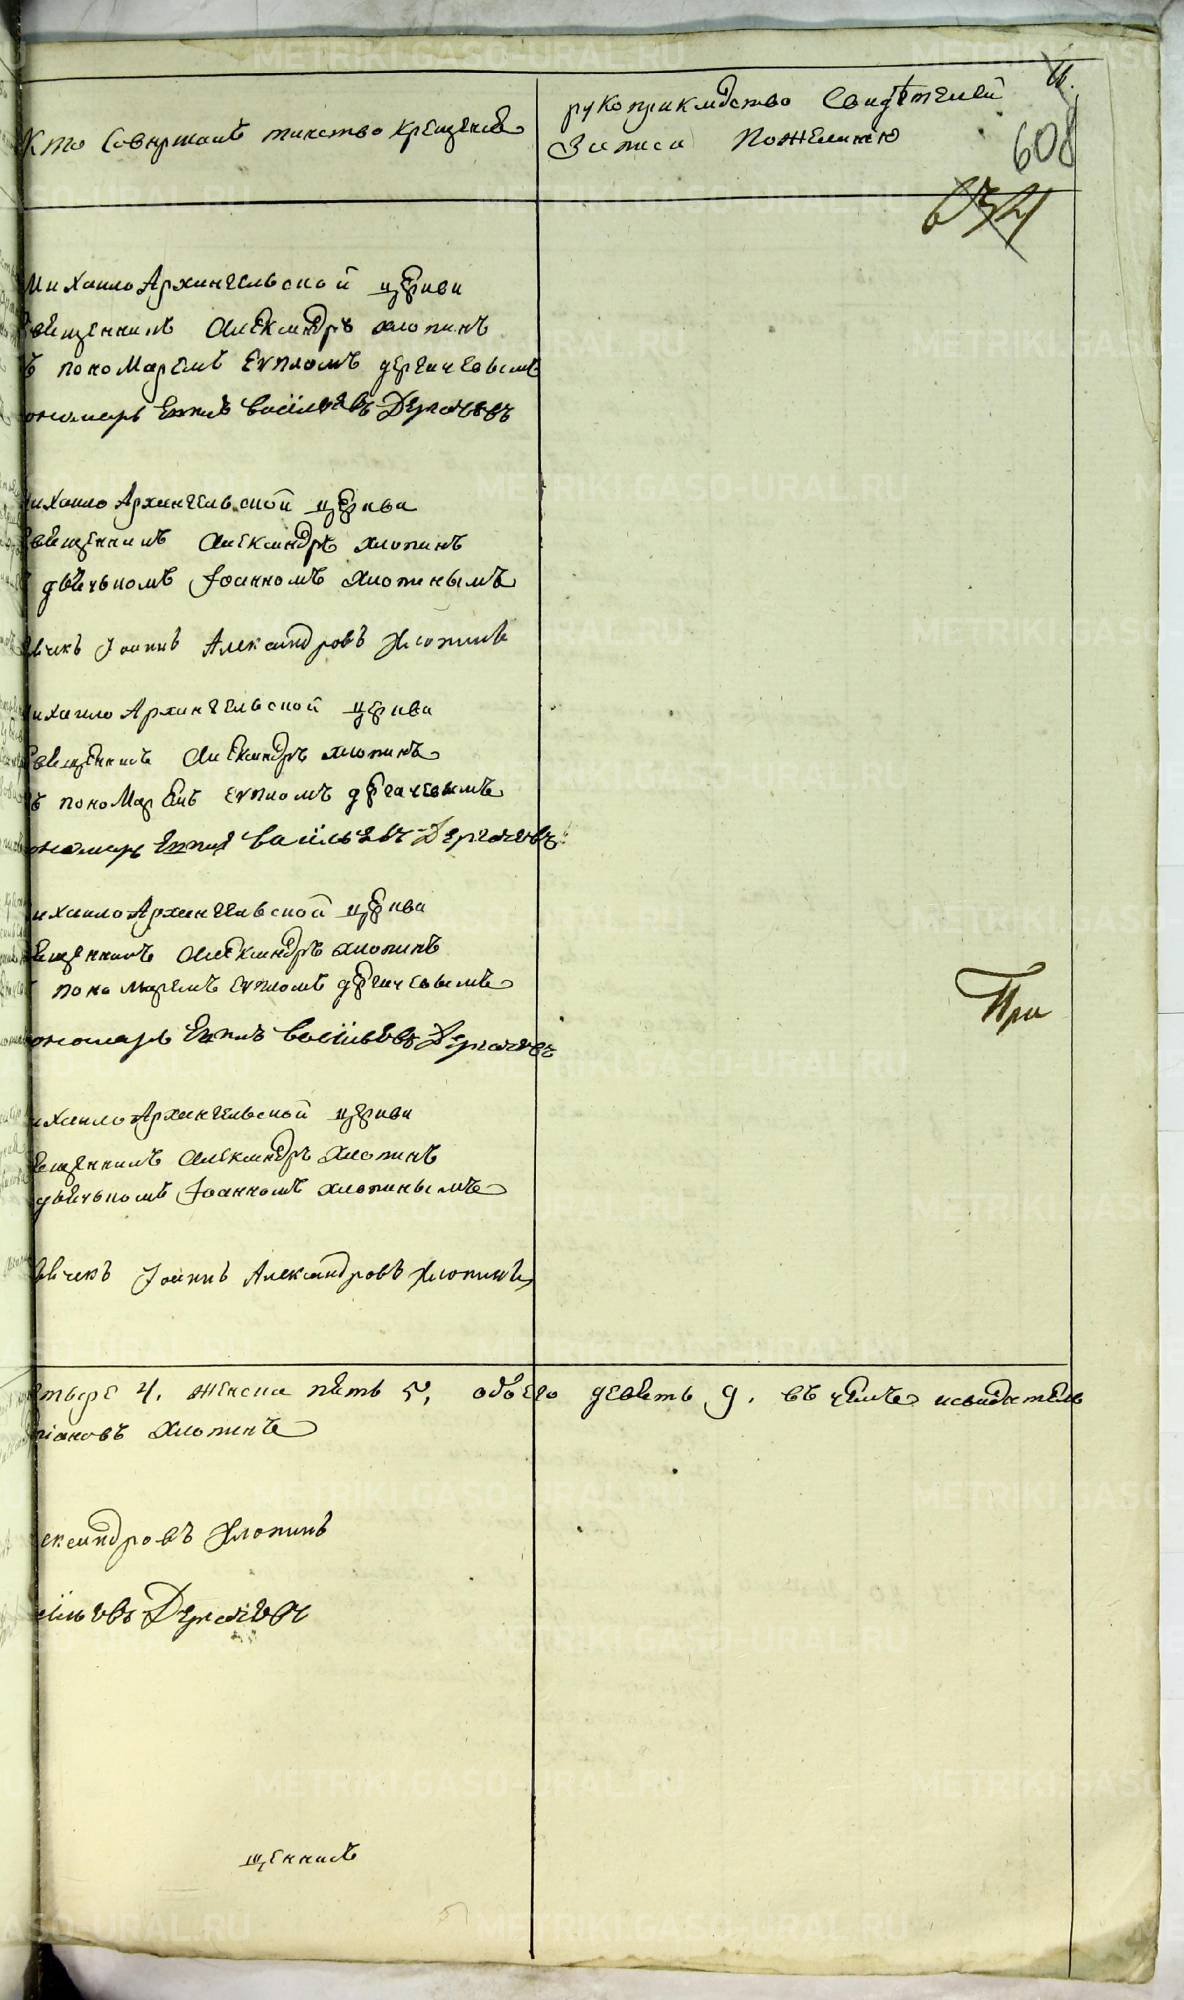 Кто Совершалъ таинство крещенія
рукоприкладство Свидѣтелей
Записи Пожеланію
608
634
Михаило Архангельской церкви
священникъ Александръ хлопинъ
съ пономаремъ Евпломъ дергачевымъ
пономарь Евплъ Васильевъ Дергачевъ
ихаило Архангельской церкви
священникъ Александръ хлопинъ
дьячькомъ Іоанномъ хлопинымъ
дьячекъ Іоаннъ Александровъ Хлопинъ
ихаило Архангельской церкви
священникъ Александръ хлопинъ
съ пономаремъ Евпломъ дергачевымъ
ономарь Евплъ Васильевъ Дергачевъ
ихаило Архангельской церкви
вященникъ Александръ хлопинъ
пономаремъ Евпломъ дергачевымъ
ономарь Евплъ Васильевъ Дергачевъ
При
ихаило Архангельской церкви
вященникъ Александръ хлопинъ
дьячькомъ Іоанномъ хлопинымъ
ячекъ Іоаннъ Александровъ Хлопинъ
етыре 4. женска пять 5, обоего девять 9. въ чемъ исвидетель
хлопинъ
ександровъ Хлопинъ
сильевъ Дергачевъ
щенникъ
METRIKI.GASO-URAL.RU